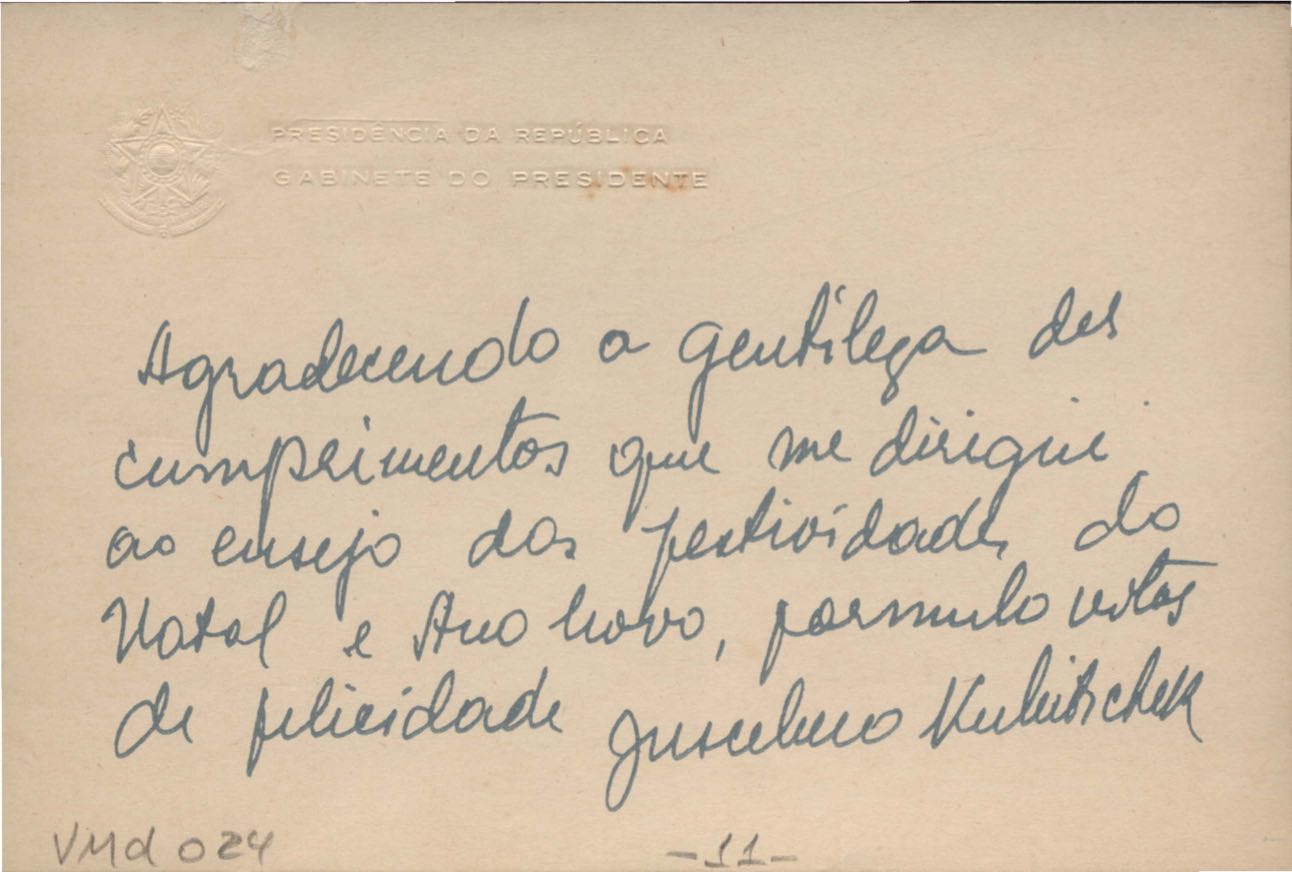 PRESIDÊNCIA DA REPÚBLICA
GABINETE DO PRESIDENTE
Agradecendo a gentileza dos
cumprimentos que me dirigiu
ao ensejo das festividades do
Natal e Ano Novo, formulo votos
de felicidade Juscelino Kubitschek
VMd 024 -11-